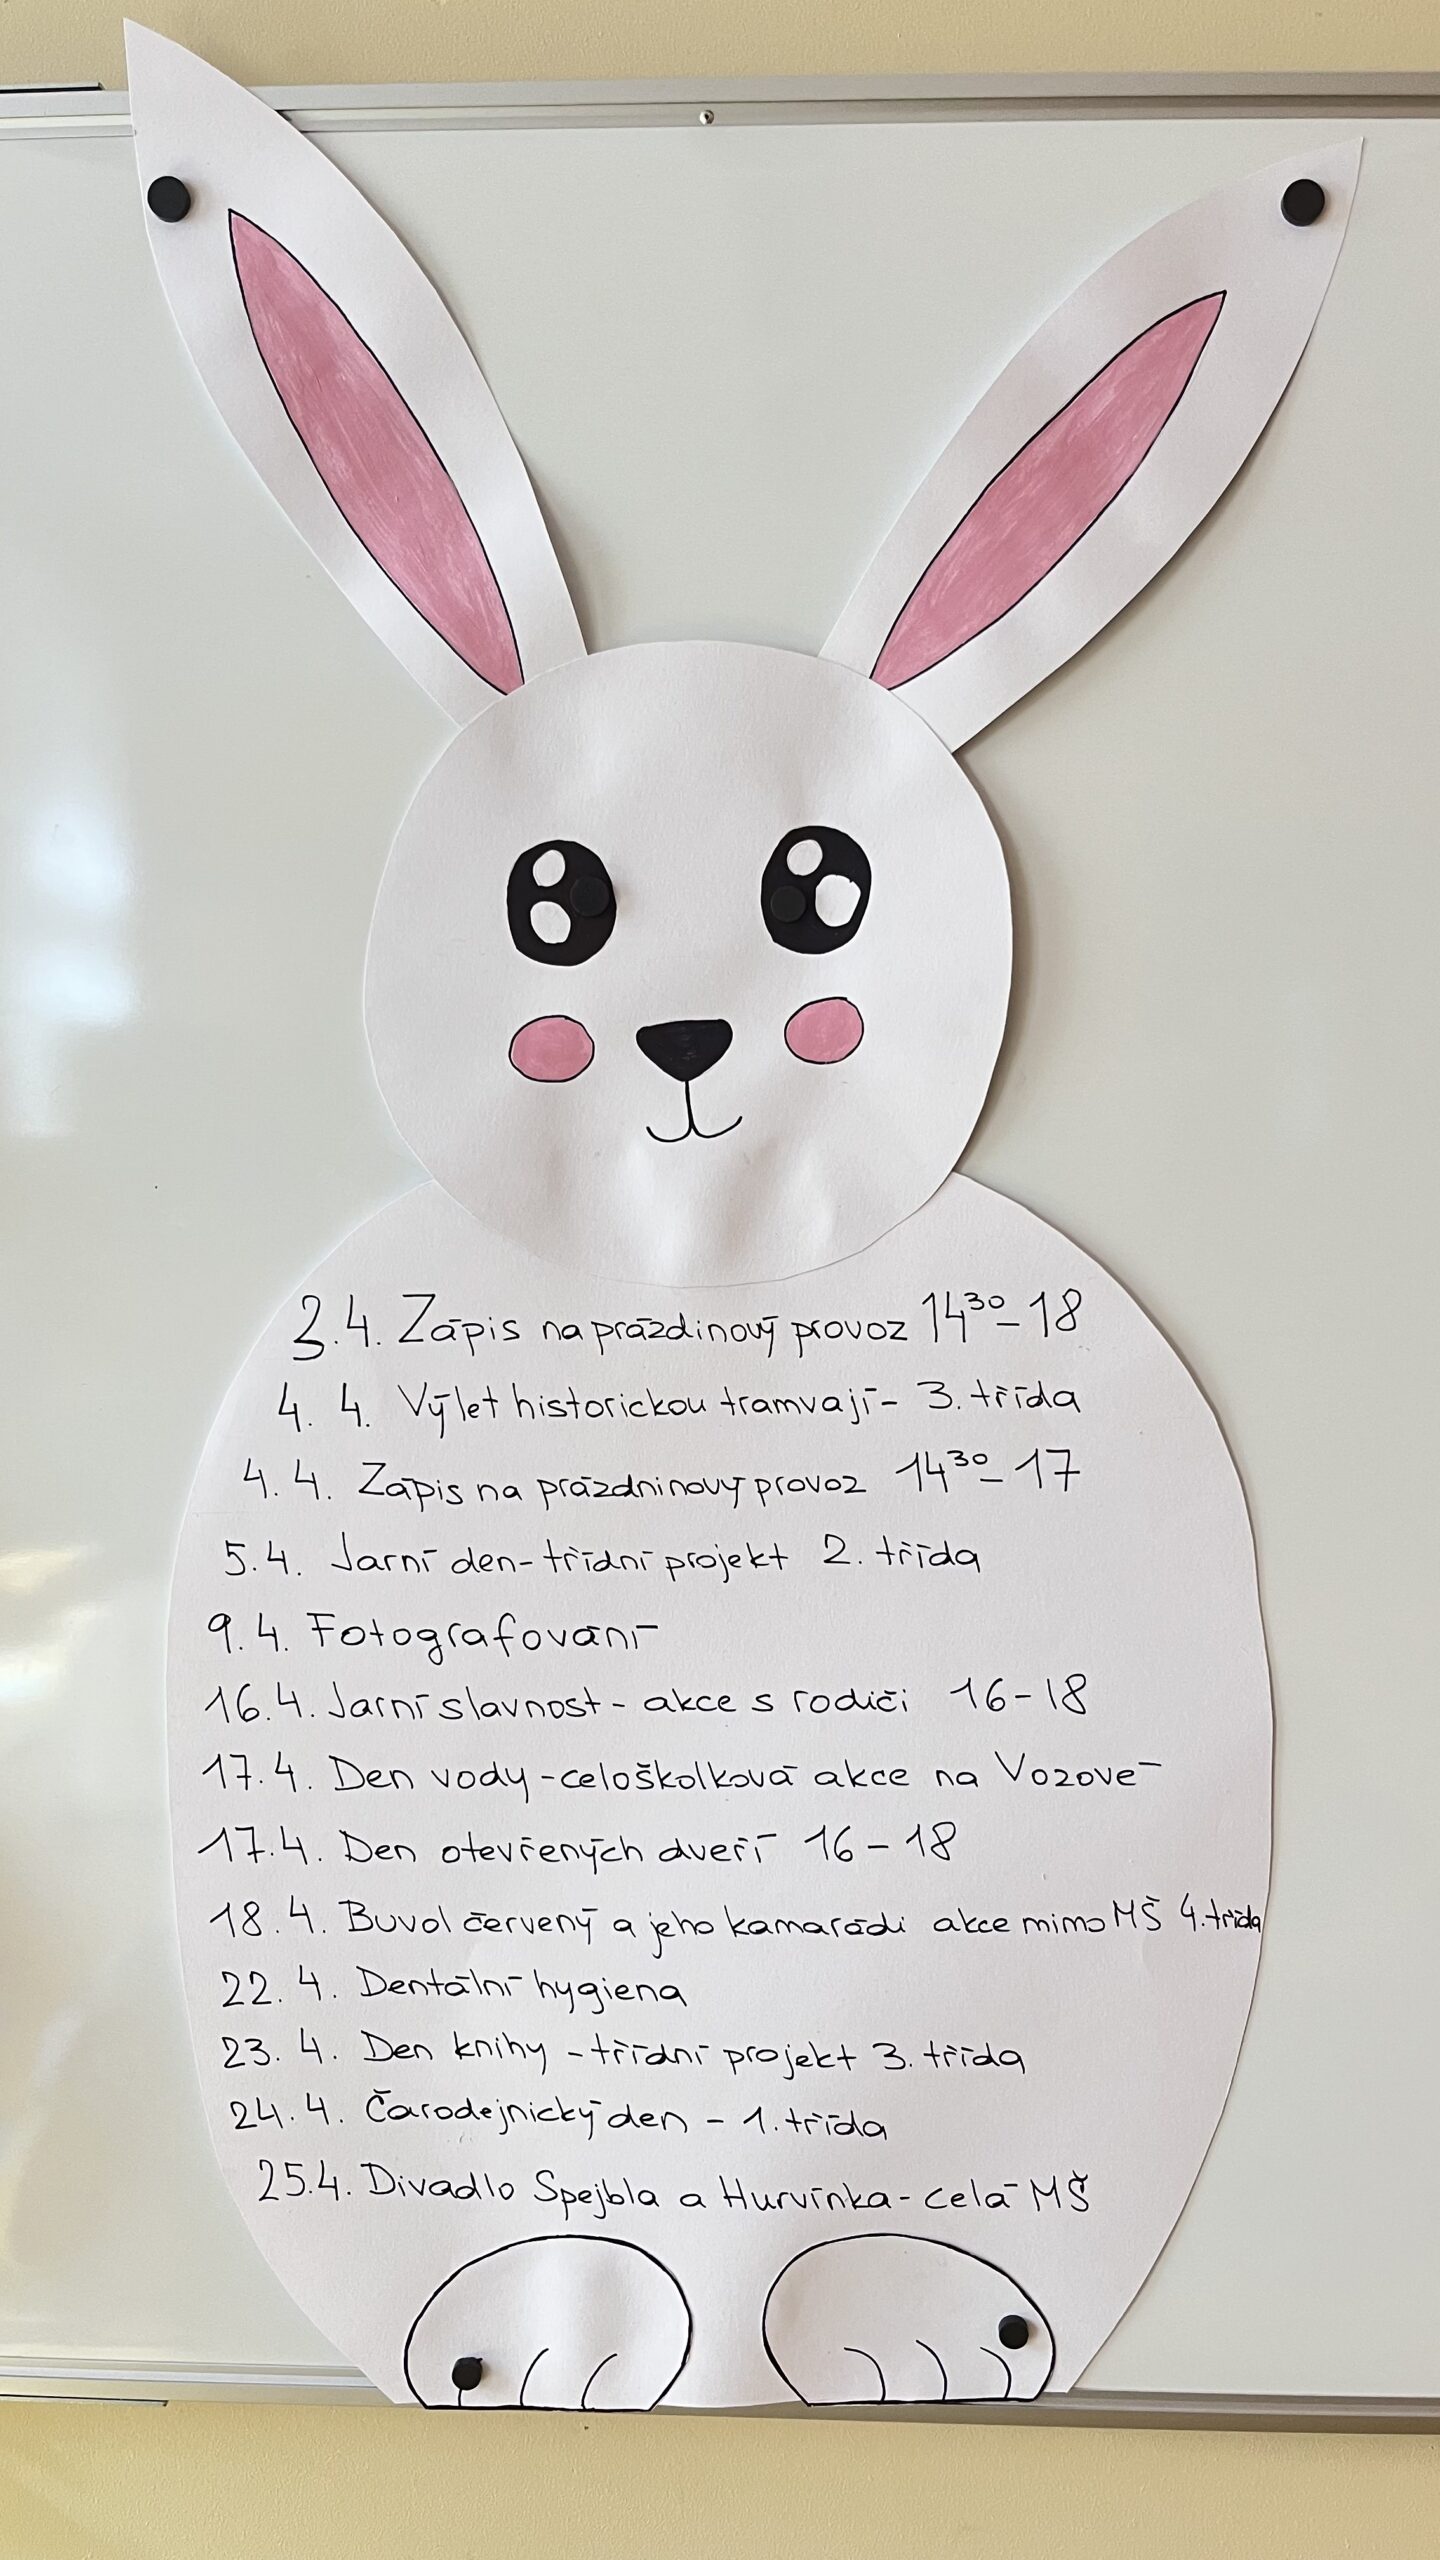 3.4. Zápis na prázdinový provoz 14³⁰-18
4. 4. Výlet historickou tramvají - 3. třída
4. 4. Zápis na prázdninový provoz 14³⁰-17
5.4. Jarní den - třídní projekt 2. třída
9.4. Fotografování
16.4. Jarní slavnost - akce s rodiči 16-18
17.4. Den vody - celoškolková akce na Vozově
17.4. Den otevřených dveří 16-18
18.4. Buvol červený a jeho kamarádi akce mimo MŠ 4. třída
22.4. Dentální hygiena
23.4. Den knihy - třídní projekt 3. třída
24.4. Čarodejnický den - 1. třída
25.4. Divadlo Spejbla a Hurvínka - celá MŠ